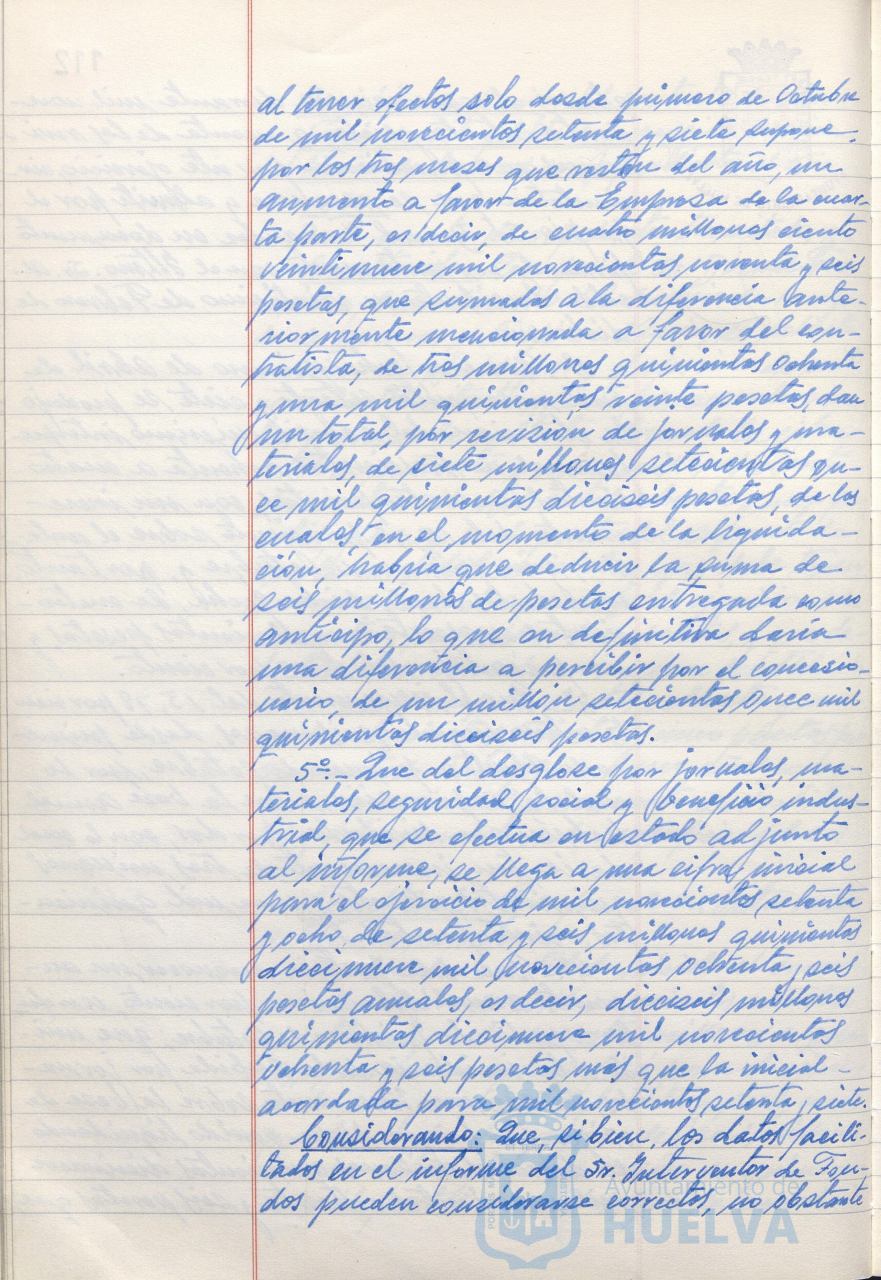 al tener efectos solo desde primero de Octubre
de mil novecientos setenta y siete supone,
por los tres meses que restan del año, un
aumento a favor de la Empresa de la cuar-
ta parte, es decir, de cuatro millones ciento
veintinueve mil novecientas noventa y seis
pesetas, que sumadas a la diferencia ante-
riormente mencionada a favor del con-
tratista, de tres millones quinientas ochenta
y una mil quinientas veinte pesetas, dan
un total, por revisión de jornales y ma-
teriales, de siete millones setecientas on-
ce mil quinientas dieciseis pesetas, de las
cuales, en el momento de la liquida-
ción, habría que deducir la suma de
seis millones de pesetas entregada como
anticipo, lo que en definitiva daría
una diferencia a percibir por el concesio-
nario, de un millón setecientas once mil
quinientas dieciseis pesetas.
5º.- Que del desglose por jornales, ma-
teriales, seguridad social y beneficio indus-
trial, que se efectua en estado adjunto
al informe, se llega a una cifra inicial
para el ejercicio de mil novecientos setenta
y ocho de setenta y seis millones quinientas
diecinueve mil novecientas ochenta y seis
pesetas anuales, es decir, dieciseis millones
quinientas diecinueve mil novecientas
ochenta y seis pesetas más que la inicial
acordada para mil novecientos setenta y siete.
Considerando: Que, si bien, los datos facili-
tados en el informe del Sr. Interventor de Fon-
dos pueden considerarse correctos, no obstante
Ayuntamiento de
HUELVA